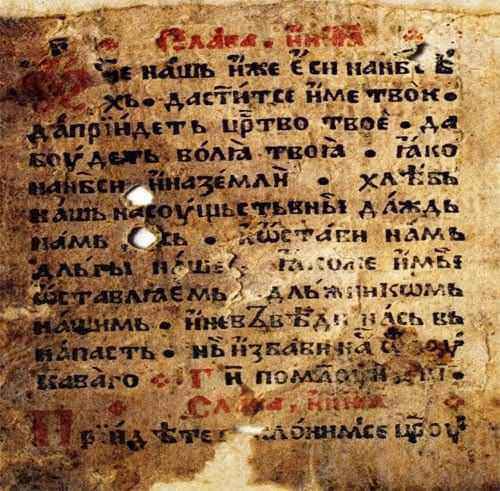 Слава, и нн҃ꙗ
ч҃е нашь и҆же е҆си на нб҃се
хь • да ст҃итсе и҆ме твок •
да прїидеть цр҃тво твое • да
боудеть волꙗ твоꙗ • ꙗ҆ко
на нб҃си и҆ на земли • хлѣбь
нашь насоущьствьны да́ждь
намь • и҆ ѡ҆стави намь
дльгы наше ꙗ҆коже и҆ мы
ѡ҆ставлꙗемь дльжникѡмь
нашимь • и҆ не вьведи нась вь
напасть • нь и҆збави на ѿ лоу
каваго Г҃и помлоуи •
Слава, и нн҃ꙗ
Прїидѣте клонимсе цр҃оу